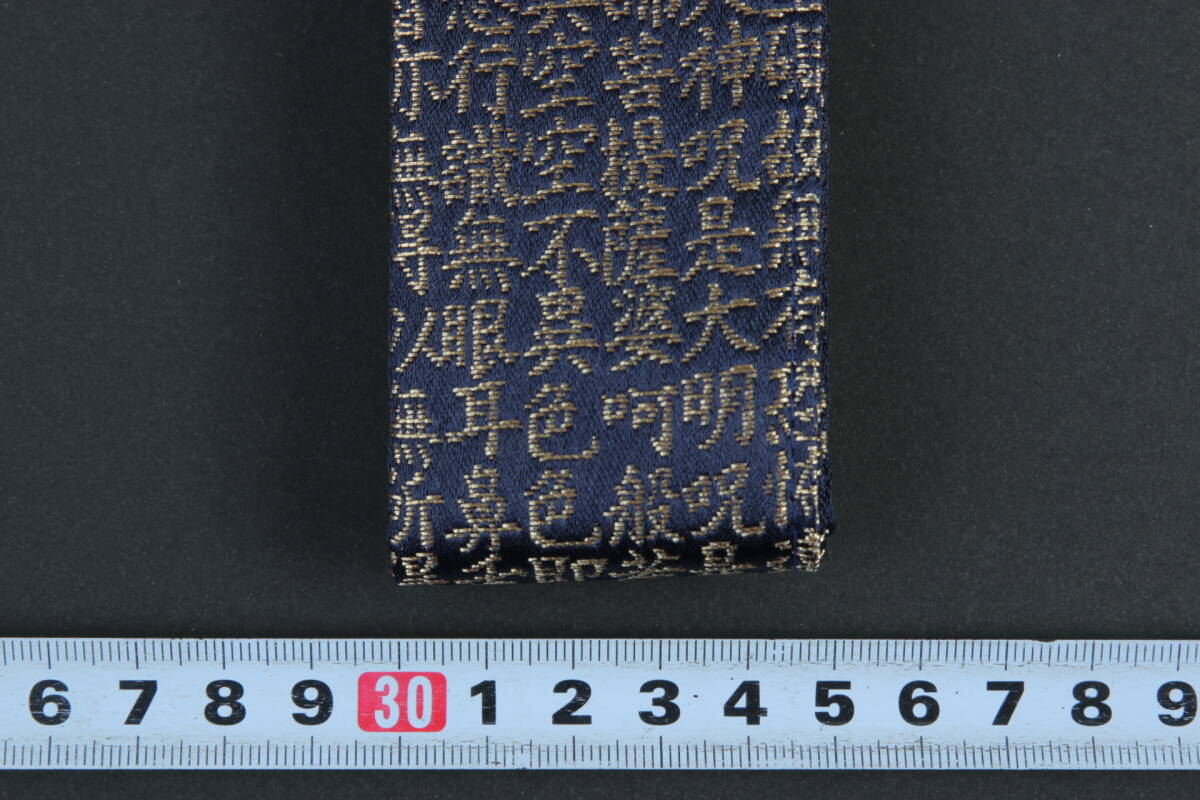 礙故無有恐怖遠
大神呪是大明呪是
諦菩提薩婆呵般若
異空空不異色色即
想行識無眼耳鼻舌
亦無得以無所得
6 7 8 9 30 1 2 3 4 5 6 7 8 9